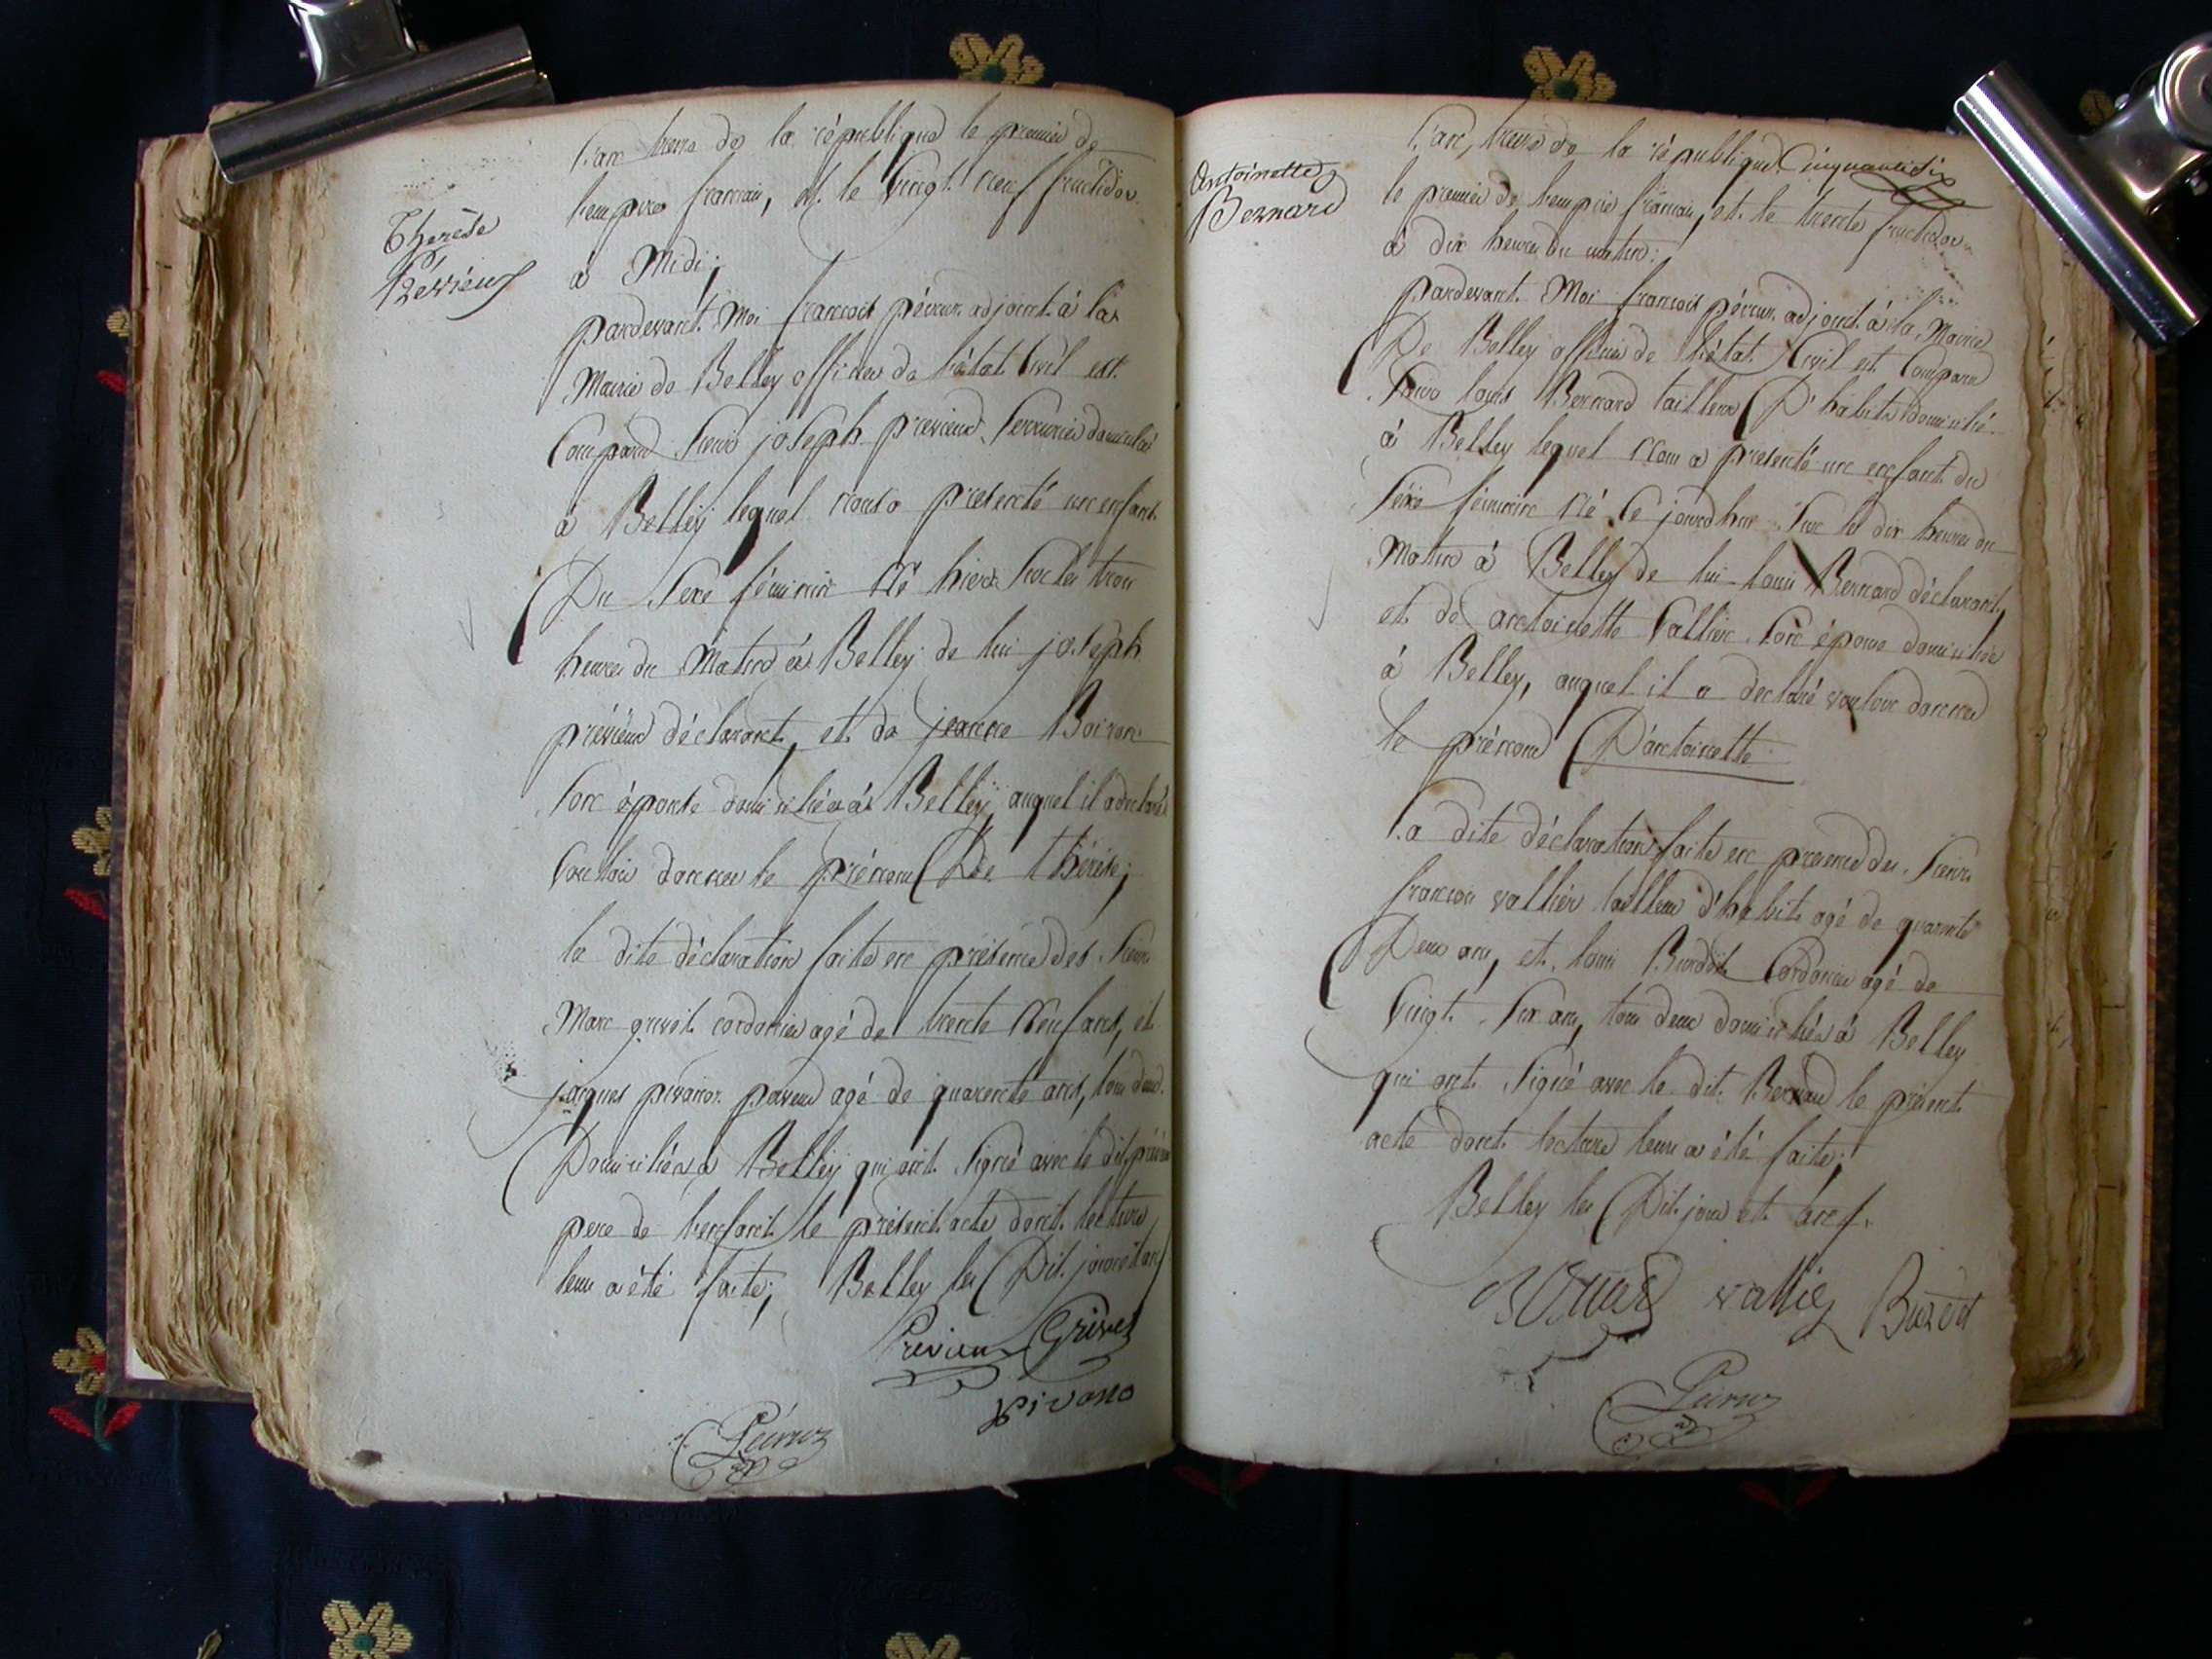 Thérèse
Prévieux
L'an treize de la république le premier de
l'empire francais, et le vingt neuf fructidor
à Midi;
pardevant Moi francois pécruz adjoint à la
Mairie de Belley officier de l'état Civil est
Comparu sieur joseph previeux serrurier domicilié
à Belley lequel nous a presenté un enfant
Du sexe féminin né hier sur les trois
heures du Matin à Belley de lui joseph
prévieux déclarant, et de jeanne
son épouse domiciliés à Belley, auquel il a declaré
vouloir donner le prénom De thérèse;
la dite déclaration faite en présence des sieurs
Marc grivet cordonier agé de trente neuf ans, et
jacques paveur agé de quarente ans, tous deux
Domiciliés à Belley qui ont signé avec le dit
pere de l'enfant le présent acte dont lecture
leur a été faite; Belley les Dit jour et an
Previeux Grivet
Pivano
Pécruz
Cinquante six
Antoinette
Bernard
L'an, treize de la république
le premier de l'empire francais, et le trente fructidor
à dix heures du matin:
pardevant Moi francois pécruz adjoint à la Mairie
De Belley officier de l'état Civil est Comparu
sieur louis Bernard tailleur D'habits domicilié
à Belley lequel nous a presenté un enfant du
sexe féminin né ce jourdhui sur les dix heures du
Matin à Belley de lui louis Bernard déclarant,
et de antoinette vallier son épouse domiciliée
à Belley, auquel il a declaré vouloir donner
le prénom D'antoinette
La dite déclaration faite en presence des sieurs
francois vallier tailleur d'habits agé de quarente
Deux ans, et louis Burdet Cordonier agé de
vingt six ans, tous deux domiciliés à Belley
qui ont signé avec le dit Bernard le présent
acte dont lecture leur a été faite;
Belley les Dit jour et an
vallier
Pécruz